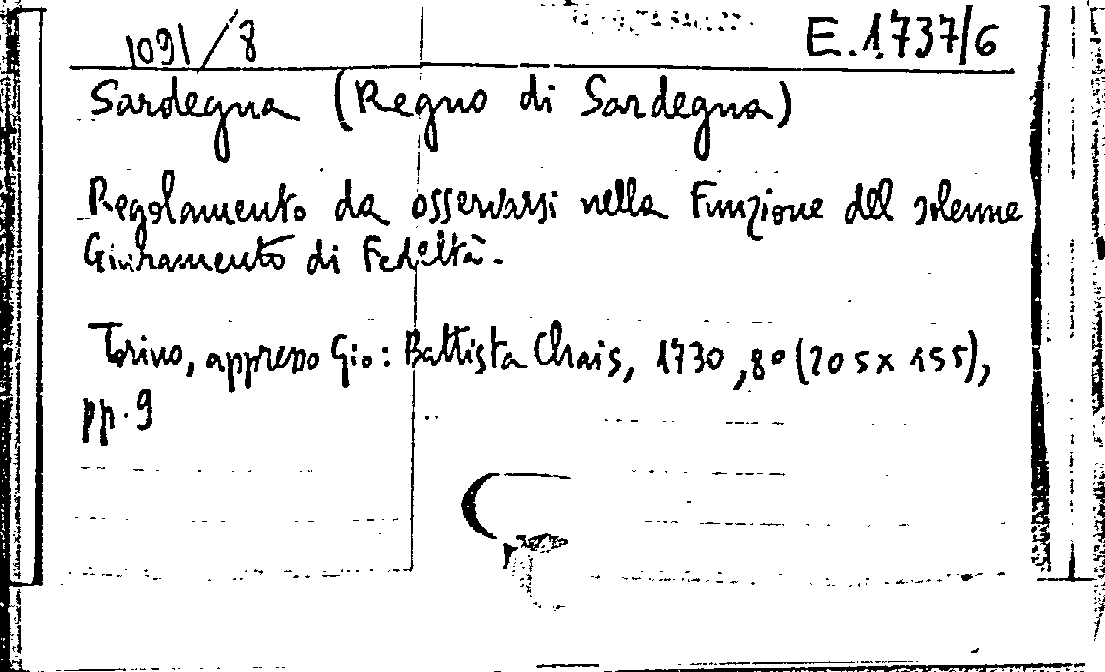 1091/8 E.1737/6
Sardegna (Regno di Sardegna)
Regolamento da osservarsi nella Funzione del solenne
Giuramento di Fedeltà.
Torino, appresso Gio: Battista Chais, 1730, 8° (205 x 155),
pp. 9